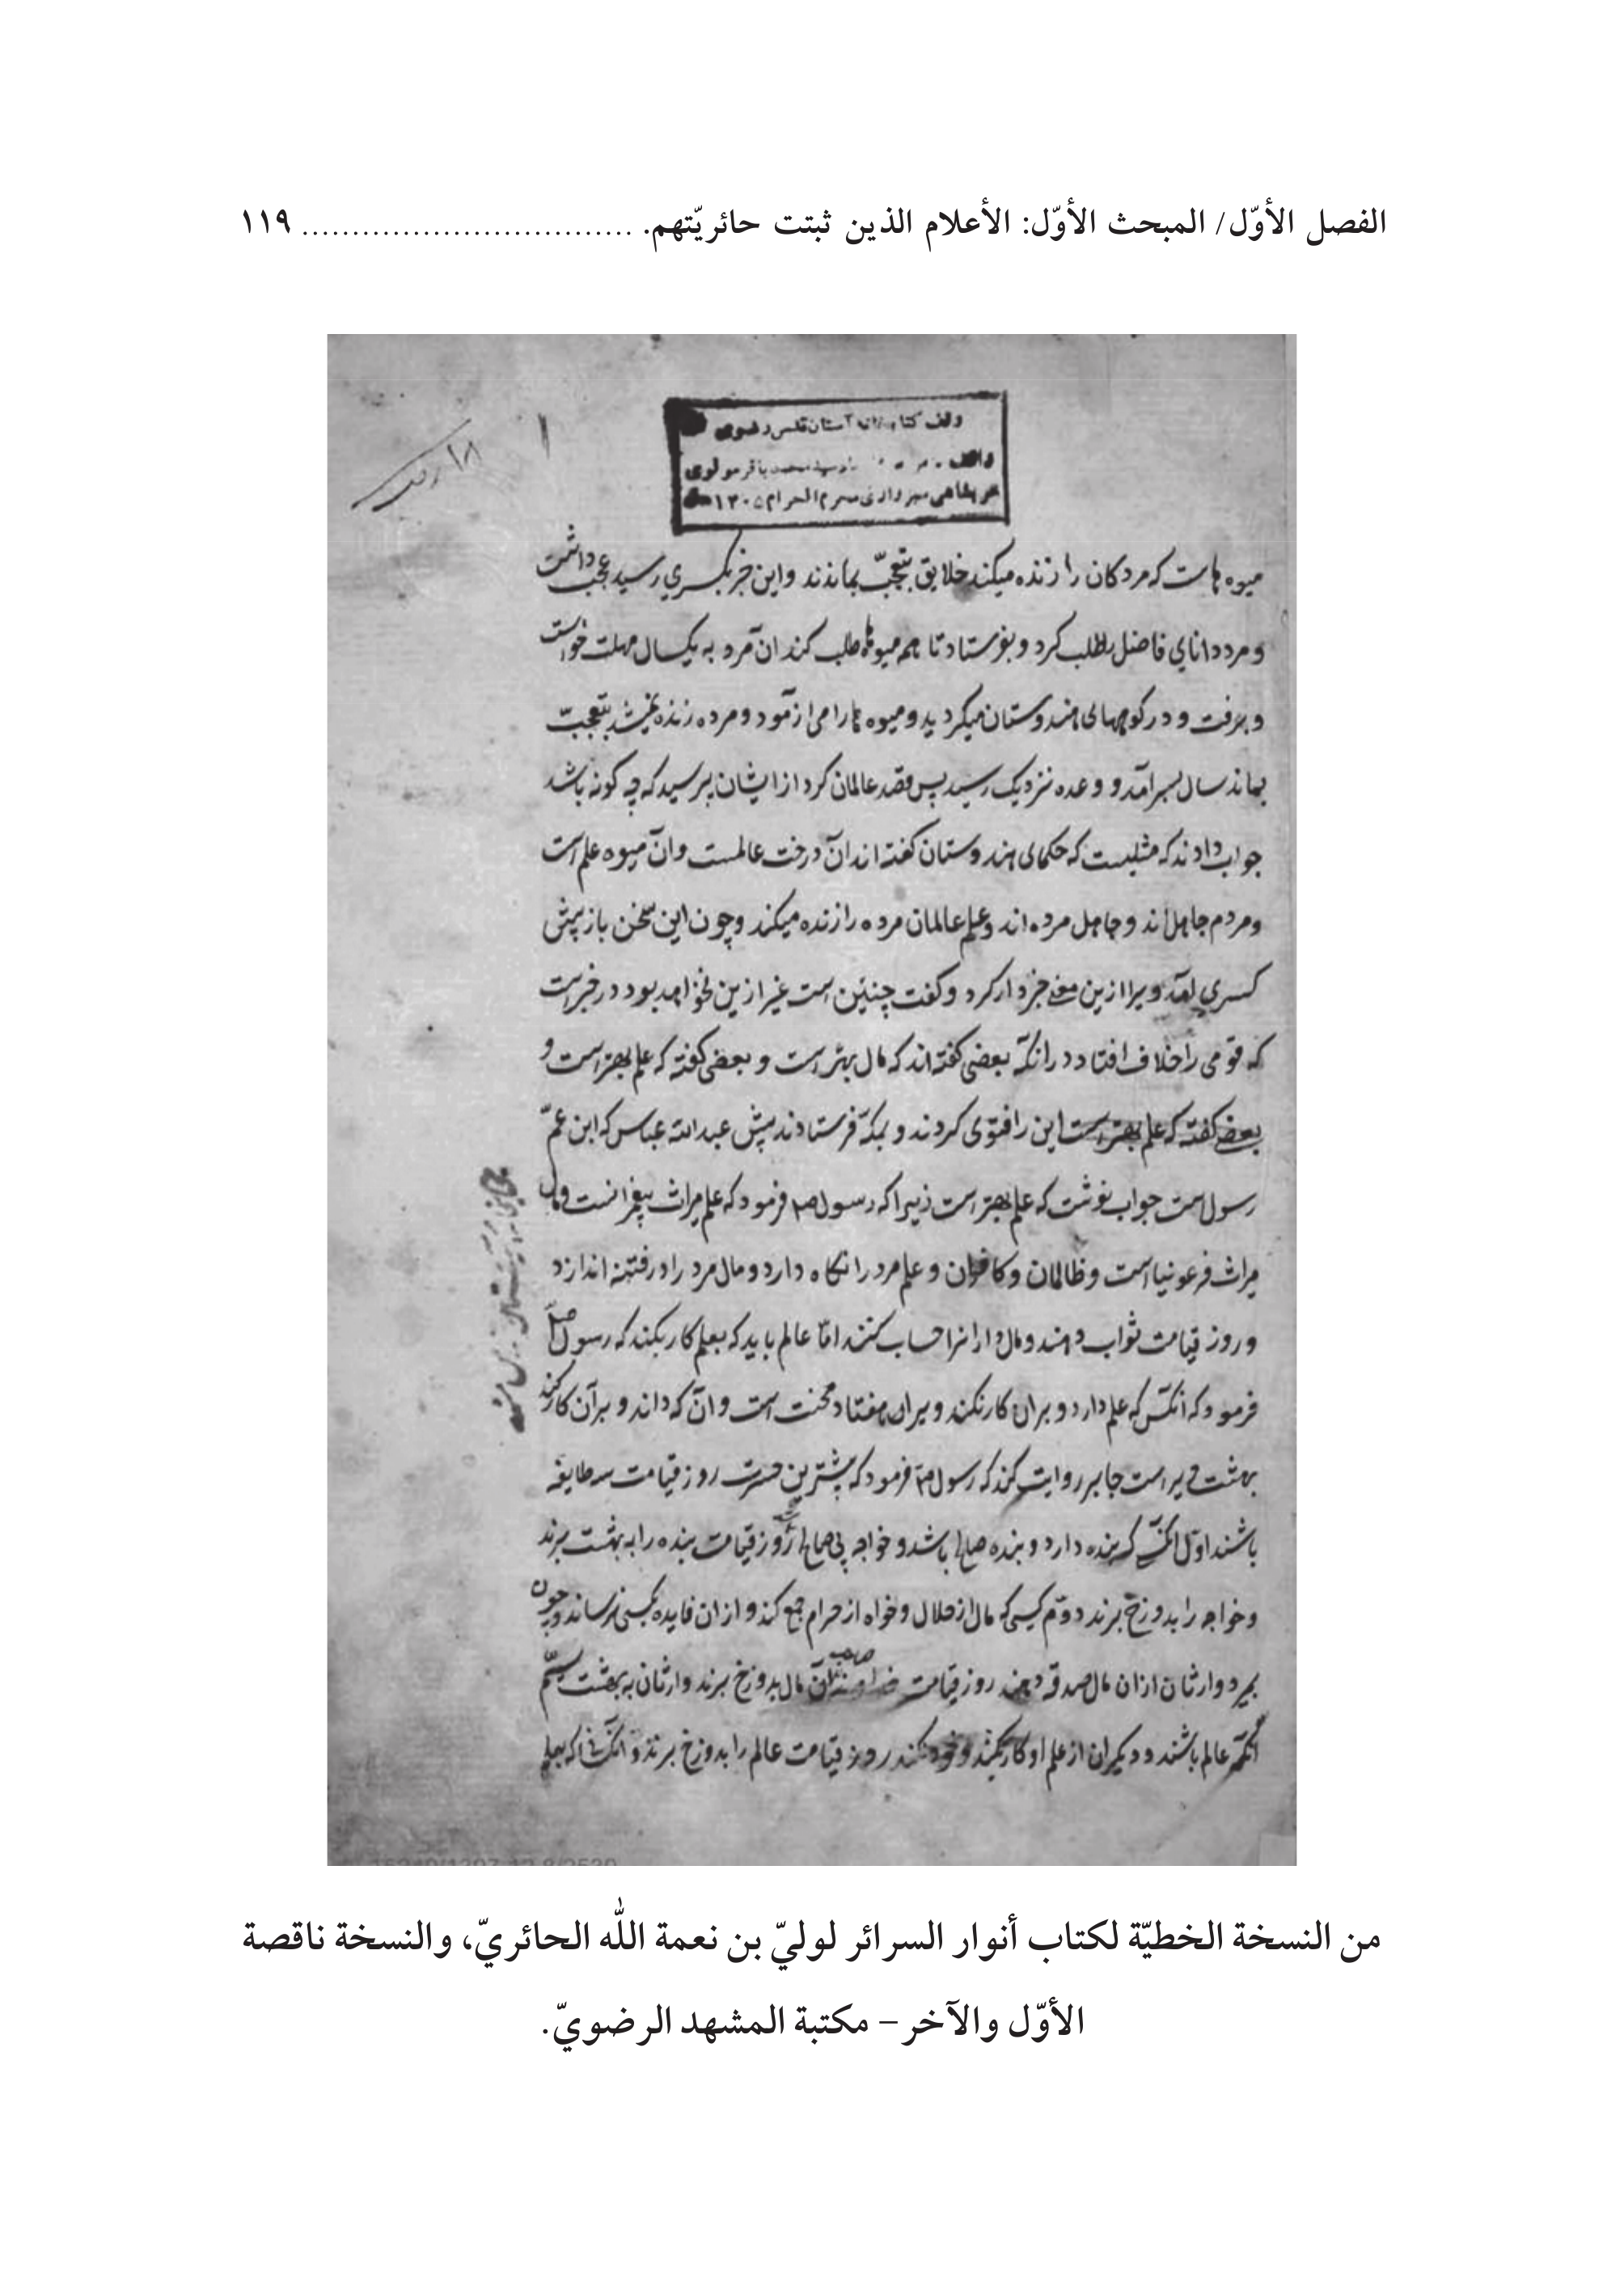 الفصل الأوّل/ المبحث الأوّل: الأعلام الذين ثبتت حائريّتهم. ................................. ١١٩
وقف كتابخانه آستان قدس رضوى
واقف سيد محمد باقر مولوى
سبزوارى محرم الحرام ١٣٠٥
١٨
ميوه هاست كه مردكان را زنده ميكند خلايق بتعجّب بماندند واين خبر بكسري رسيد عجب داشت
و مرد داناي فاضل طلب كرد و بفرستاد تا هم ميوها طلب كند ان مرد به يكسال مهلت خواست
و برفت و در كوههاى هندوستان ميكرديد و ميوه ها را مى ازمود و مرده زنده نميشد بتعجبّ
بماند سال بسر آمد و وعده نزديك رسيد پس قصد عالمان كرد از ايشان پرسيد كه چه كونه باشد
جواب دادند كه مثليست كه حكماى هندوستان كفته اند ان درخت عالمست وان ميوه علم است
ومردم جاهل اند و جاهل مرده اند و علم عالمان مرده را زنده ميكند و چون اين سخن باز پيش
كسري آمد ويرا ازين معنے خبردار كرد و كفت چنين است غير ازين نخواهد بود در خبر است
كه قومى را خلاف افتاد در انكه بعضى كفته اند كه مال بهتر است و بعضى كفته كه علم بهتر است و
بعضے كفته كه علم بهتر است اين را فتوى كردند و بمكه فرستادند پيش عبد الله عباس كه ابن عمّ
رسول است جواب نوشت كه علم بهتر است زيرا كه رسول صم فرمود كه علم ميراث پيغمرانست ومال
ميراث فرعونيا است و ظالمان و كافران و علم مرد را نكاه دارد و مال مرد را در فتنه اندازد
و روز قيامت ثواب دهند و مال دار انرا حساب كنند امّا عالم بايد كه بعلم كار بكند كه رسول صم
فرمود كه انكس كه علم دارد و بران كار نكند ويرا هفتاد محنت است و ان كه داند و بر آن كار كند
بهشت ويراست جابر روايت كند كه رسول صم فرمود كه بيشترين حسرت روز قيامت سه طايفه
باشند اوّل انكس كه بنده دارد و بنده صالح باشد و خواجه بى صالح روز قيامت بنده را به بهشت برند
و خواجه را بدوزخ برند دوّم كسى كه مال از حلال و خواه از حرام جمع كند و از ان فايده بكسى نرساند و چون
بميرد وارثان ازان مال صدقه دهند روز قيامت صاحب آن مال بدوزخ برند وارثان به بهشت سيّم
انكه عالم باشند و ديكران از علم او كار كنند و خود نكند روز قيامت عالم را بدوزخ برند و
من النسخة الخطيّة لكتاب أنوار السرائر لوليّ بن نعمة الله الحائريّ، والنسخة ناقصة
الأوّل والآخر – مكتبة المشهد الرضويّ.